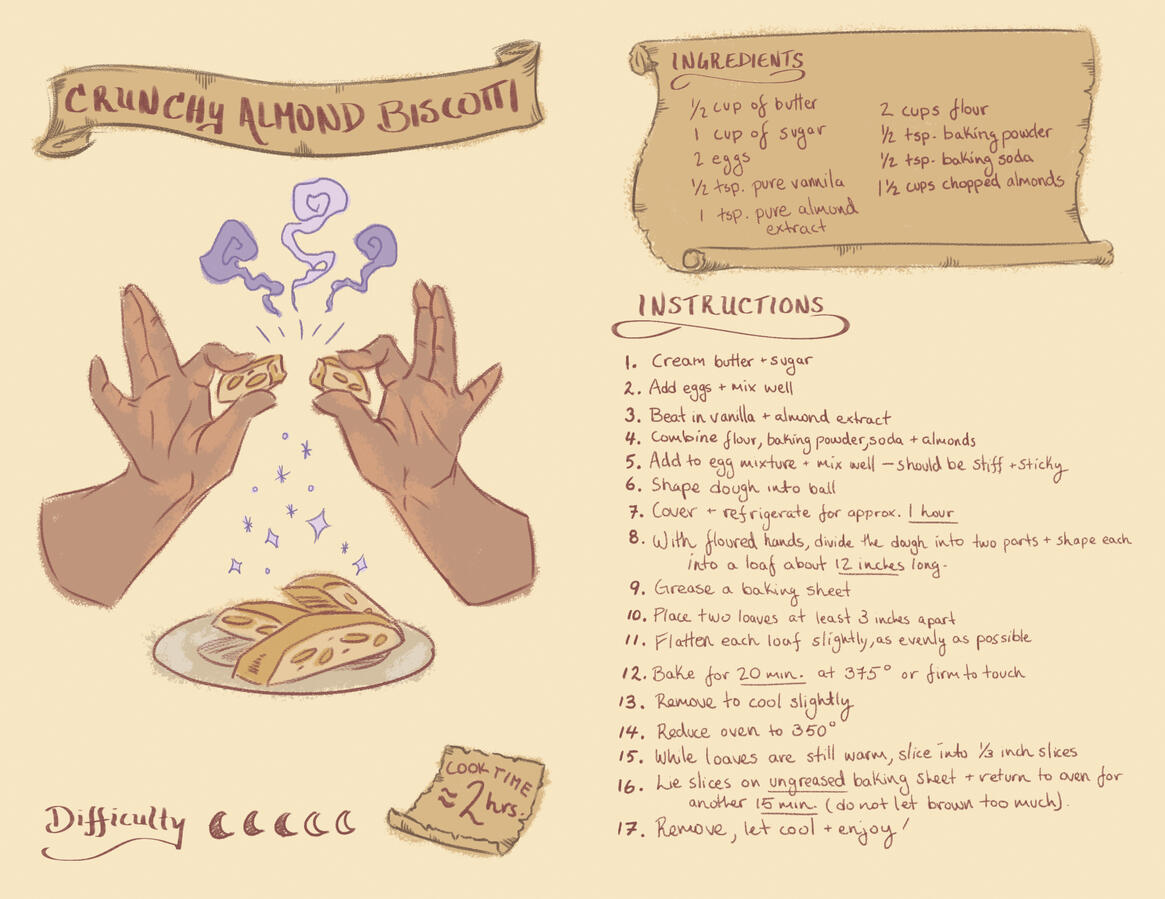 CRUNCHY ALMOND BISCOTTI
Difficulty
COOK TIME
≈ 2 hrs.
INGREDIENTS
1/2 cup of butter
1 cup of sugar
2 eggs
1/2 tsp. pure vannila
1 tsp. pure almond
extract
2 cups flour
1/2 tsp. baking powder
1/2 tsp. baking soda
1 1/2 cups chopped almonds
INSTRUCTIONS
1. Cream butter + sugar
2. Add eggs + mix well
3. Beat in vanilla + almond extract
4. Combine flour, baking powder, soda + almonds
5. Add to egg mixture + mix well — should be stiff + sticky
6. Shape dough into ball
7. Cover + refrigerate for approx. 1 hour
8. With floured hands, divide the dough into two parts + shape each
into a loaf about 12 inches long.
9. Grease a baking sheet
10. Place two loaves at least 3 inches apart
11. Flatten each loaf slightly, as evenly as possible
12. Bake for 20 min. at 375° or firm to touch
13. Remove to cool slightly
14. Reduce oven to 350°
15. While loaves are still warm, slice into 1/3 inch slices
16. Lie slices on ungreased baking sheet + return to oven for
another 15 min. (do not let brown too much).
17. Remove, let cool + enjoy!